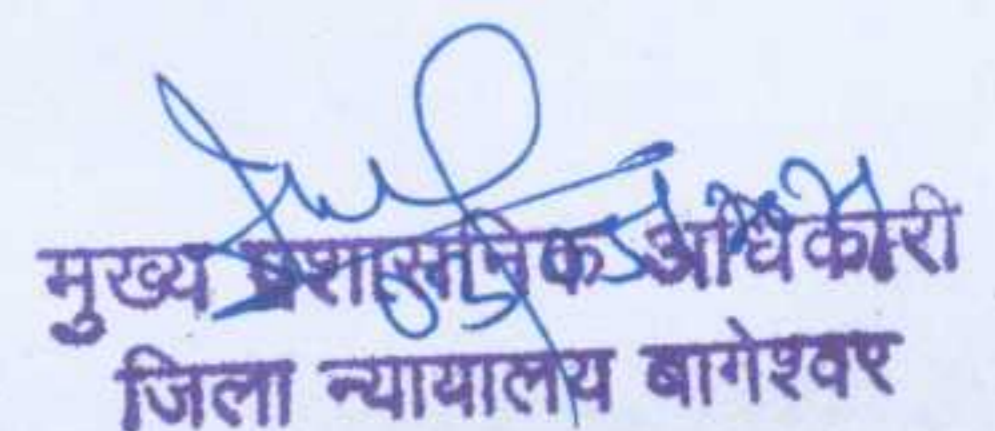 मुख्य प्रशासनिक अधिकारी
जिला न्यायालय बागेश्वर